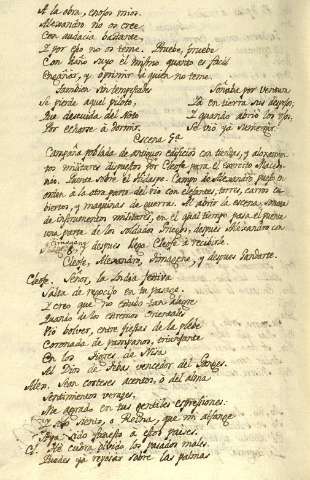 A la obra, enojos mios.
Alexandro no os cree
Con audacia bastante,
I por eso no os teme. Pruebe, pruebe
Con daño suyo el mismo quanto es facil
Engañar, y oprimir à quien no teme.
Tambien sin tempestades Soñaba por ventura
Se pierde aquel piloto, Ya en tierra sus despojos;
Que descuida del Noto I quando abrió los ojos,
Por echarse à dormir. Se vió ya sumergir.
Escena 5ª
Campaña poblada de antiguos edificios con tiendas, y alojamien-
tos militares dispuestos por Cleofe para el exercito Macedo-
nio. Puente sobre el Hidaspe. Campo de Alexandro puesto en
orden à la otra parte del rio con elefantes, torres, carros cu-
biertos, y maquinas de guerra. Al abrir la escena, sonata
de instrumentos militares, en el qual tiempo pasa el puente
una parte de los soldados Griegos, despues Alexandro con
Timagene, y despues llega Cleofe à recibirle.
Cleofe, Alexandro, Timagene, y despues Gandarte.
Cleofe. Señor, la India festiva
Salta de regocijo en tu pasage.
I creo que no estubo tan alegre
Quando de los extremos Orientales
Vió bolver, entre fiestas de la plebe
Coronada de pampanos, triunfante
En los tigres de Nisa
Al Dios de Tebas, vencedor del Ganges.
Alex. Sean corteses acentos, ò del alma
Sentimientos veraces,
Me agrada en tus gentiles expresiones:
Y solo siento, ò Reina, que mi alfange
Haya sido funesto à estos paises.
Cl. He cubra olvido los pasados males.
Puedes ya reposar sobre las palmas